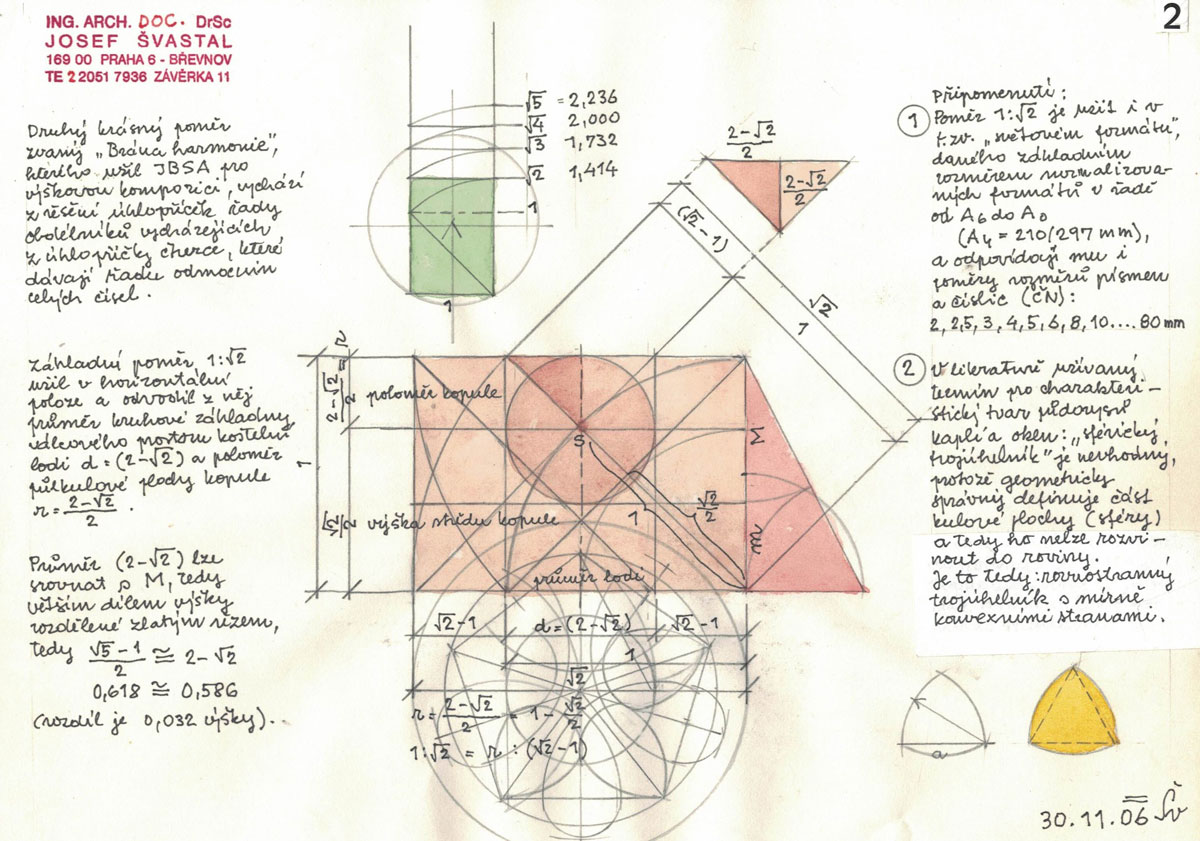 2
ING. ARCH. DOC. DrSc
JOSEF ŠVASTAL
169 00 PRAHA 6 - BŘEVNOV
TE 2 2051 7936 ZÁVĚRKA 11
Druhý krásný poměr
zvaný „Brána harmonie",
kterého užil JBSA pro
výškovou kompozici, vychází
z řešení úhlopříček řady
obdélníků vycházejících
z úhlopříčky čtverce, které
dávají řadu odmocnin
celých čísel.
Základní poměr 1:√2
užil v horizontální
poloze a odvodil z něj
průměr kruhové základny
válcového prostoru kostelní
lodi d = (2-√2) a poloměr
půlkulové plochy kopule
r = 2-√2/2 .
Průměr (2-√2) lze
srovnat s M, tedy
větším dílem výšky
rozdělené zlatým řezem,
tedy √5-1/2 ≅ 2-√2
0,618 ≅ 0,586
(rozdíl je 0,032 výšky).
√5 = 2,236
√4 2,000
√3 1,732
√2 1,414
1
1
2-√2/2
2-√2/2
(√2-1)
√2
1
1
2-√2/2 = r
√2/2
poloměr kopule
S
M
√2/2
1
výška středu kopule
m
průměr lodi
√2-1
d = (2-√2)
√2-1
1
√2
r = 2-√2/2 = 1-√2/2
1:√2 = r : (√2-1)
Připomenutí:
1 Poměr 1:√2 je užit i v
t.zv. „světovém formátu",
daného základním
rozměrem normalizova-
ných formátů v řadě
od A6 do A0
(A4 = 210/297 mm),
a odpovídají mu i
poměry rozměrů písmen
a číslic (ČN):
2, 2,5, 3, 4, 5, 6, 8, 10.... 80 mm
2 V literatuře užívaný
termín pro charakteri-
stický tvar půdorysů
kaplí a oken: „sférický
trojúhelník" je nevhodný,
protože geometricky
správný definuje část
kulové plochy (sféry)
a tedy ho nelze rozvi-
nout do roviny.
Je to tedy: rovnostranný
trojúhelník s mírně
konvexními stranami.
a
30.11.06 Šv